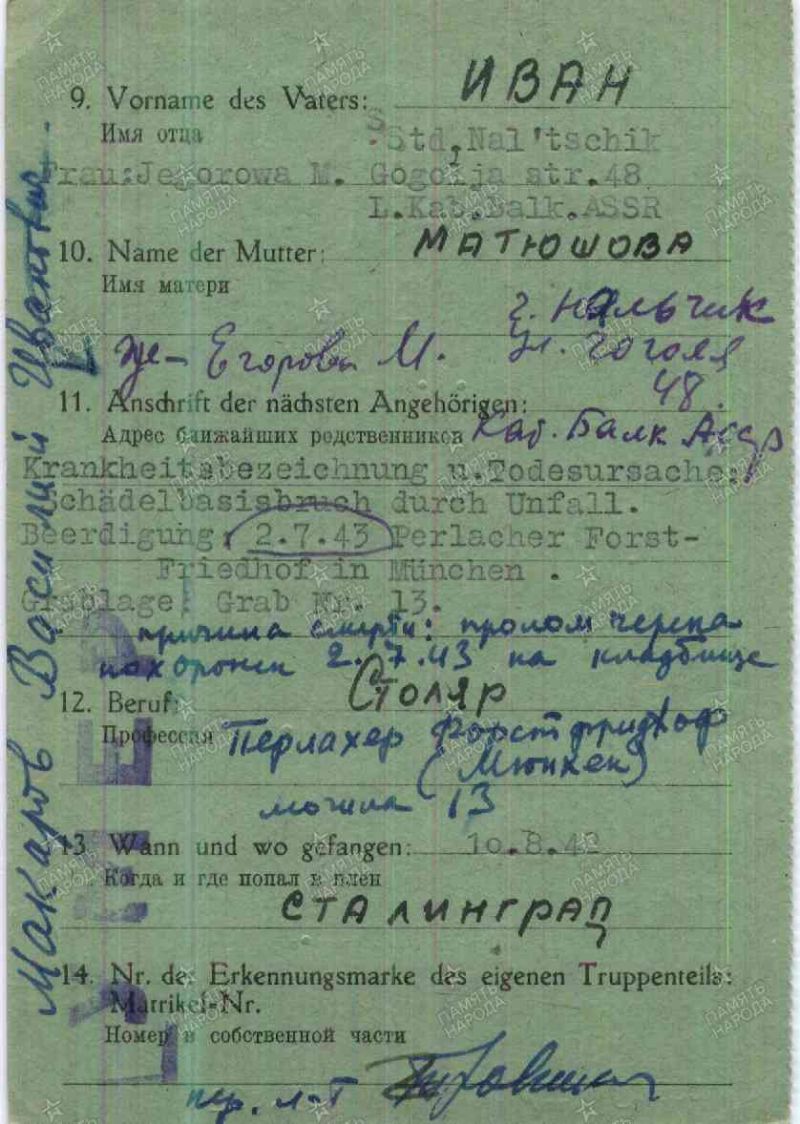 9. Vorname des Vaters: ИВАН
Имя отца
Std. Nal'tschik
Frau: Jegorowa M. Gogolja str.48
L.Kab.Balk.ASSR
10. Name der Mutter: МАТЮШОВА
Имя матери
г. Нальчик
же- Егорова М. ул. Гоголя
48.
11. Anschrift der nächsten Angehörigen:
Адрес ближайших родственников Каб. Балк Асср
Krankheitsbezeichnung u.Todesursache:
Schädelbasisbruch durch Unfall.
Beerdigung: 2.7.43 Perlacher Forst-
Friedhof in München .
Grablage: Grab Nr. 13.
причина смерти: пролом черепа
похоронен 2.7.43 на кладбище
12. Beruf: Столяр
Профессия Перлахер Форстфридхоф
(Мюнхен)
могила 13
13. Wann und wo gefangen: 10.8.42
Когда и где попал в плен
СТАЛИНГРАД
14. Nr. der Erkennungsmarke des eigenen Truppenteils:
Matrikel-Nr.
Номер в собственной части
пер. л-т
Макаров Василий Иванович
ПАМЯТЬ НАРОДА